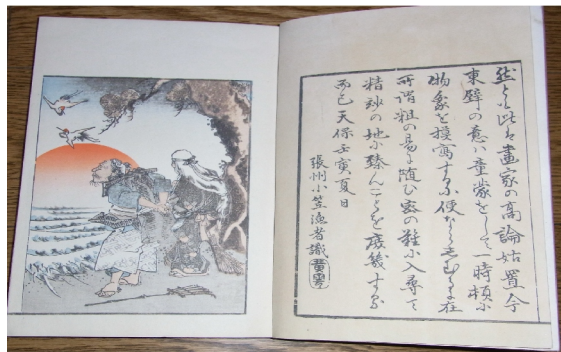 然しとも此は畫家の高論姑置今
東壁の意は童蒙をして一時頓に
物象を摸寫するに便ならしむるに在
所謂粗の易に随ひ密の難に入尋て
精妙の地に臻んことを庶幾する
而已天保壬寅夏日
張州小笠漁者識